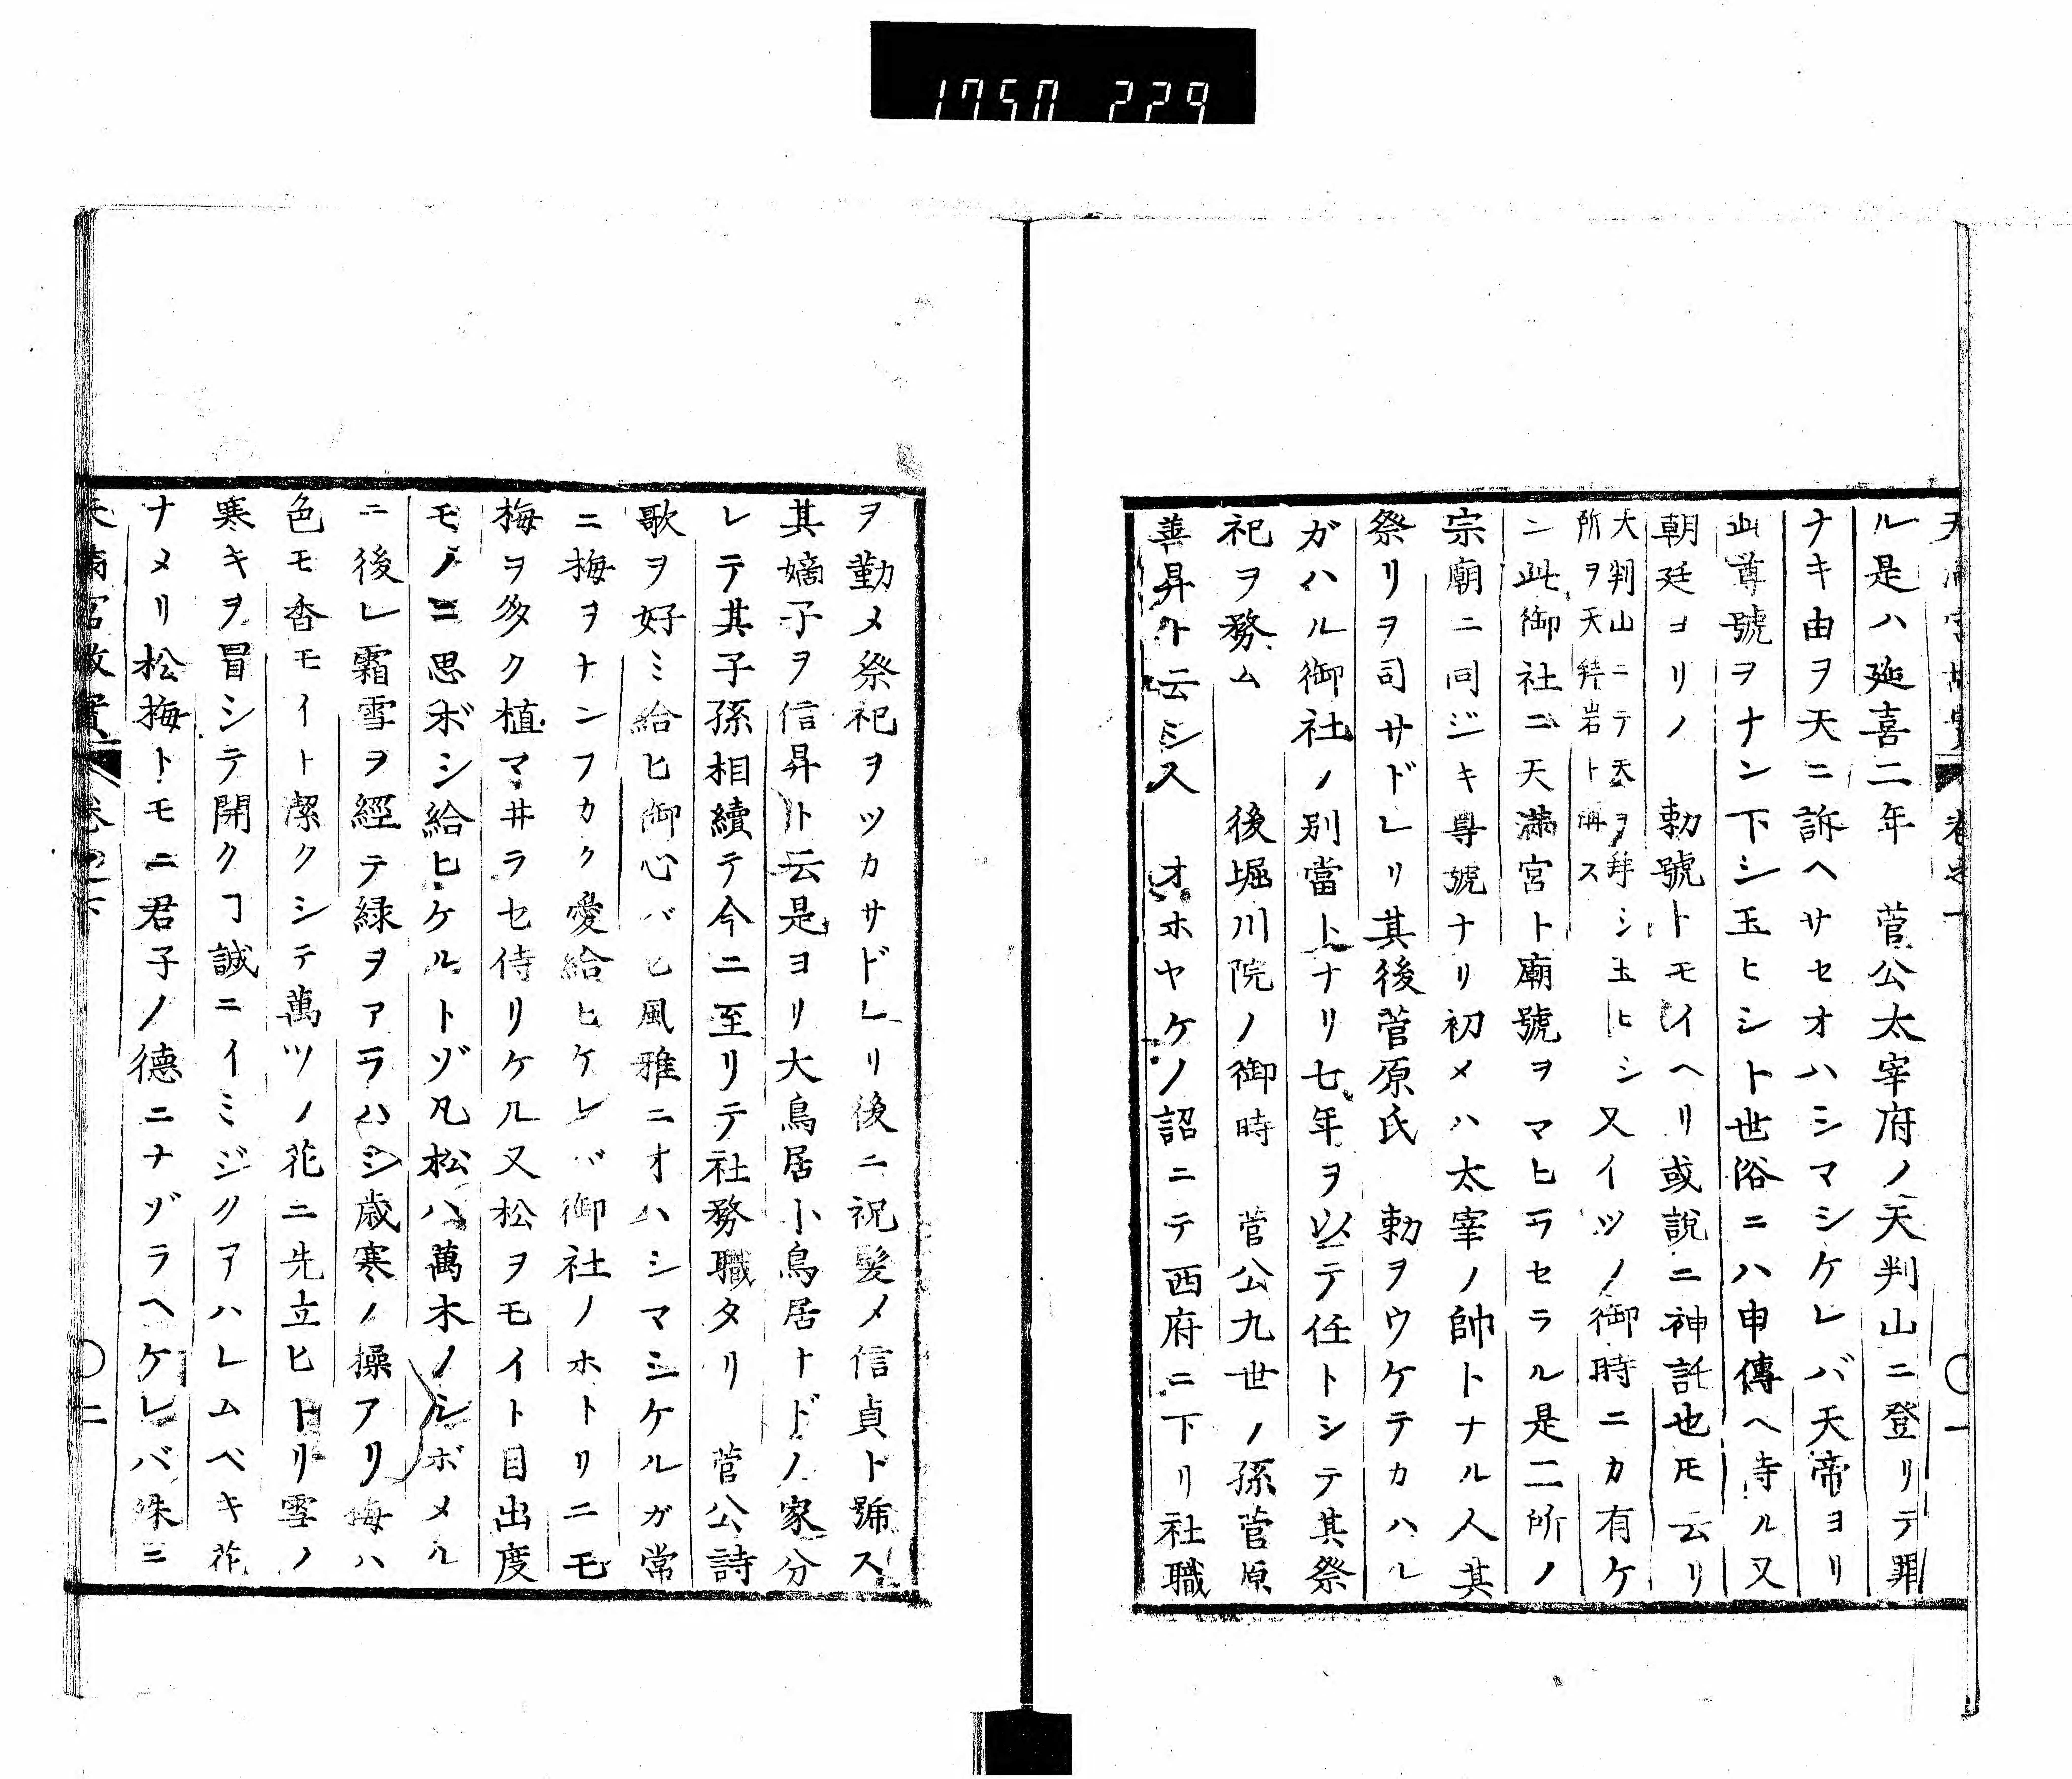 1750 229
ル是ハ延喜二年　菅公太宰府ノ天判山ニ登リテ罪
ナキ由ヲ天ニ訴ヘサセオハシマシケレバ天帝ヨリ
此尊號ヲナン下シ玉ヒシト世俗ニハ申傳ヘ寺ル又
朝廷ヨリノ　勅號トモイヘリ或說ニ神託也𪜈云リ
大判山ニテ天ヲ拜シ玉ヒシ
所ヲ天拜岩ト稱ス
又イツノ御時ニカ有ケ
ン此御社ニ天滿宮ト廟號ヲマヒラセラル是二所ノ
宗廟ニ同ジキ尊號ナリ初メハ太宰ノ帥トナル人其
祭リヲ司サドレリ其後菅原氏　勅ヲウケテカハル
ガハル御社ノ別當トナリ七年ヲ以テ任トシテ其祭
祀ヲ務ム　後堀川院ノ御時　菅公九世ノ孫菅原
善昇ト云シ人　オホヤケノ詔ニテ西府ニ下リ社職
ヲ勤メ祭祀ヲツカサドレリ後ニ祝髮メ信貞ト號ス
其嫡子ヲ信昇ト云是ヨリ大鳥居小鳥居ナドノ家分
レテ其子孫相續テ今ニ至リテ社務職タリ　菅公詩
歌ヲ好ミ給ヒ御心バヒ風雅ニオハシマシケルガ常
ニ梅ヲナンフカク愛給ヒケレバ御社ノホトリニモ
梅ヲ多ク植マ井ラセ侍リケル又松ヲモイト目出度
モノニ思ボシ給ヒケルトゾ凡松ハ萬木ノシボメル
ニ後レ霜雪ヲ經テ緑ヲアラハシ歳寒ノ操アリ梅ハ
色モ香モイト潔クシテ萬ツノ花ニ先立ヒトリ雪ノ
寒キヲ冒シテ開クヿ誠ニイミジクアハレムベキ花
ナメリ松梅トモニ君子ノ德ニナゾラヘケレバ殊ニ
天滿宮故實　卷之下　〇二